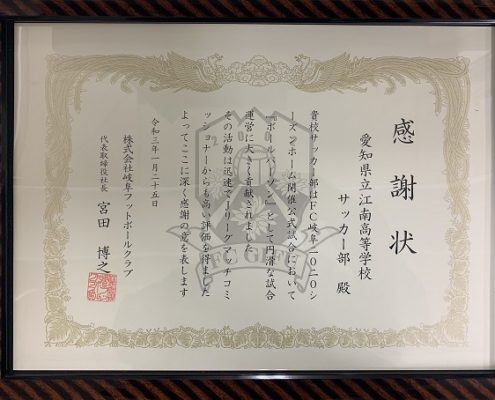 感謝状
愛知県立江南高等学校
サッカー部 殿
貴校サッカー部はFC岐阜二〇二〇シ
ーズンホーム開催公式試合において
『ボールパーソン』として円滑な試合
運営に大きく貢献されました
その活動は迅速でJリーグマッチコミ
ッショナーからも高い評価を得ました
よってここに深く感謝の意を表します
令和三年一月二十五日
株式会社岐阜フットボールクラブ
代表取締役社長 宮田 博之
FC GIFU